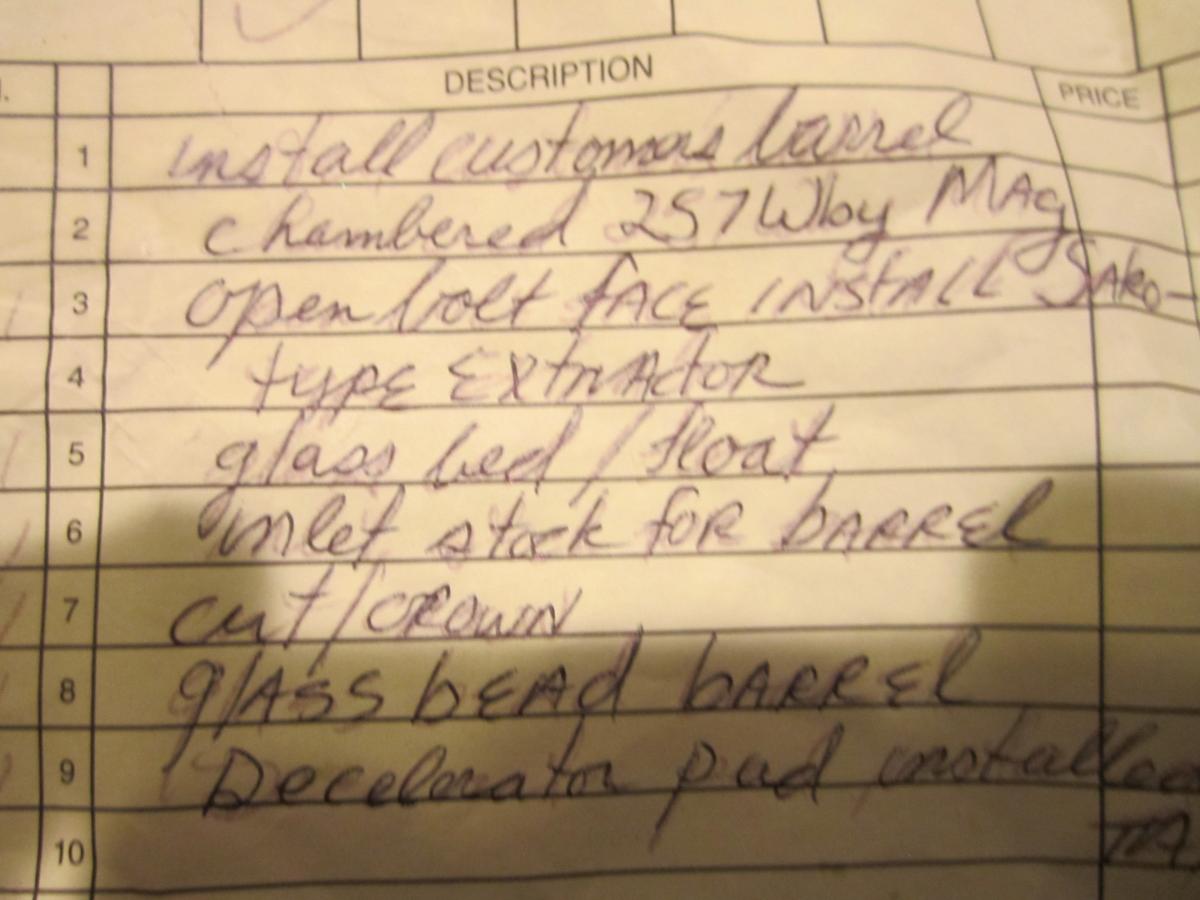 DESCRIPTION PRICE
1 install customers barrel
2 chambered 257 Wby MAg
3 open bolt fACE INStALL SAKO-
4 typE ExtrActoR
5 glass bed / float
6 inlet stock foR bARREl
7 cut/CROWN
8 glASS bEAd bARREl
9 Decelerator pad installed
10